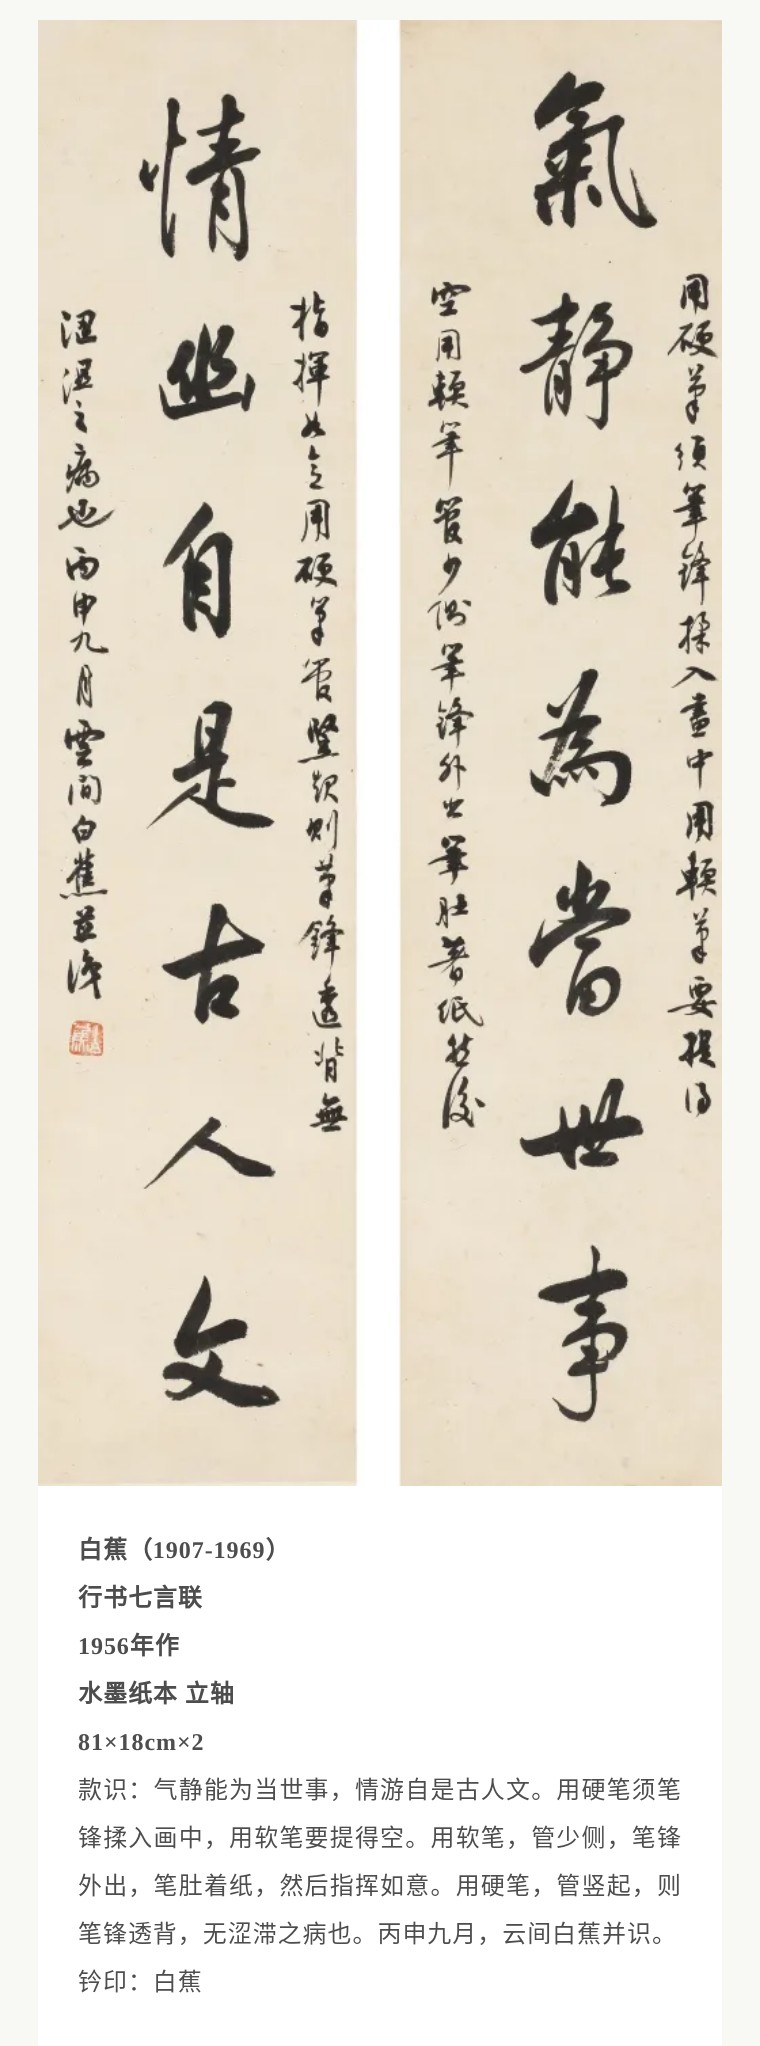 氣靜能為當世事
用硬筆須筆鋒揉入畫中用輭筆要提得
空用輭筆管少側筆鋒外出筆肚著紙然後
情幽自是古人文
指揮如意用硬筆管豎起則筆鋒透背無
澀滯之病也丙申九月雲間白蕉並識
白蕉
白蕉（1907-1969）
行书七言联
1956年作
水墨纸本 立轴
81×18cm×2
款识：气静能为当世事，情游自是古人文。用硬笔须笔
锋揉入画中，用软笔要提得空。用软笔，管少侧，笔锋
外出，笔肚着纸，然后指挥如意。用硬笔，管竖起，则
笔锋透背，无涩滞之病也。丙申九月，云间白蕉并识。
钤印：白蕉